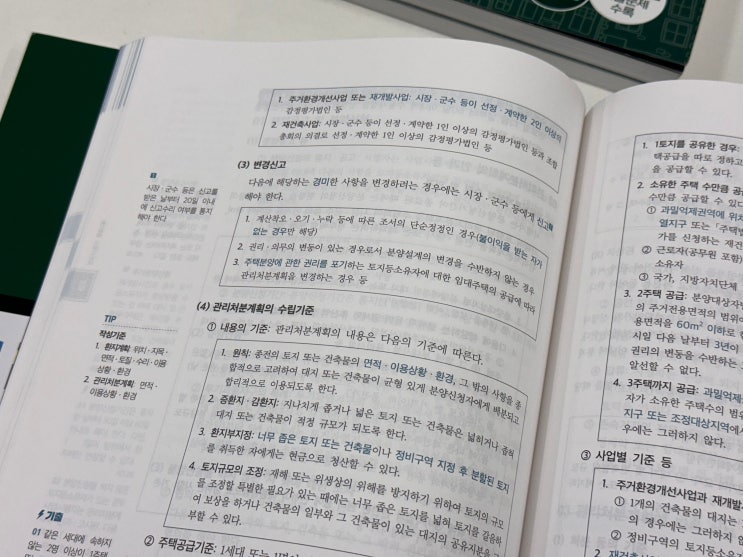 수록
1. 주거환경개선사업 또는 재개발사업: 시장·군수 등이 선정·계약한 2인 이상의
감정평가법인 등
2. 재건축사업: 시장·군수 등이 선정·계약한 1인 이상의 감정평가법인 등과 조합
총회의 의결로 선정·계약한 1인 이상의 감정평가법인 등
(3) 변경신고
다음에 해당하는 경미한 사항을 변경하려는 경우에는 시장·군수 등에게 신고
해야 한다.
시장·군수 등은 신고를
받은 날부터 20일 이내
에 신고수리 여부를 통지
해야 한다
1. 계산착오·오기·누락 등에 따른 조서의 단순정정인 경우(불이익을 받는 자가
없는 경우만 해당)
2. 권리·의무의 변동이 있는 경우로서 분양설계의 변경을 수반하지 않는 경우
3. 주택분양에 관한 권리를 포기하는 토지등소유자에 대한 임대주택의 공급에 따라
관리처분계획을 변경하는 경우 등
(4) 관리처분계획의 수립기준
① 내용의 기준: 관리처분계획의 내용은 다음의 기준에 따른다.
TIP
작성기준
1. 환지계획: 위치·지목·
면적·토질·수리·이용
상황·환경
2. 관리처분계획: 면적·
이용상황·환경
1. 원칙: 종전의 토지 또는 건축물의 면적·이용상황·환경, 그 밖의 사항을 종
합적으로 고려하여 대지 또는 건축물이 균형 있게 분양신청자에게 배분되고
합리적으로 이용되도록 한다.
2. 증환지·감환지: 지나치게 좁거나 넓은 토지 또는 건축물은 넓히거나 좁혀
대지 또는 건축물이 적정 규모가 되도록 한다.
3. 환지부지정: 너무 좁은 토지 또는 건축물이나 정비구역 지정 후 분할된 토지
를 취득한 자에게는 현금으로 청산할 수 있다.
4. 토지규모의 조정: 재해 또는 위생상의 위해를 방지하기 위하여 토지의 규모
를 조정할 특별한 필요가 있는 때에는 너무 좁은 토지를 넓혀 토지를 갈음하
여 보상을 하거나 건축물의 일부와 그 건축물이 있는 대지의 공유지분을
부할 수 있다.
② 주택공급기준: 1세대 또는 1명이
기출
01 같은 세대에 속하지
않는 2명 이상이 1주택
1. 1토지를 공유한 경우:
택공급을 따로 정하고
을 공급할 수 있다.
2. 소유한 주택 수만큼 공급
수만큼 공급할 수 있다
① 과밀억제권역에 위치
열지구 또는 「주택법
가를 신청하는 재건
② 근로자(공무원 포함)
소유자
③ 국가, 지방자치단체
3. 2주택 공급: 분양대상자
의 주거전용면적의 범위에
용면적을 60m² 이하로 한
시일 다음 날부터 3년이
권리의 변동을 수반하는
알선할 수 없다.
4. 3주택까지 공급: 과밀억제
자가 소유한 주택수의 범위
지구 또는 조정대상지역에서
우에는 그러하지 않다.
③ 사업별 기준 등
1. 주거환경개선사업과 재개발
① 1개의 건축물의 대지는
의 경우에는 그러하지 않
② 정비구역의 토지등소유
2. 재건축사업